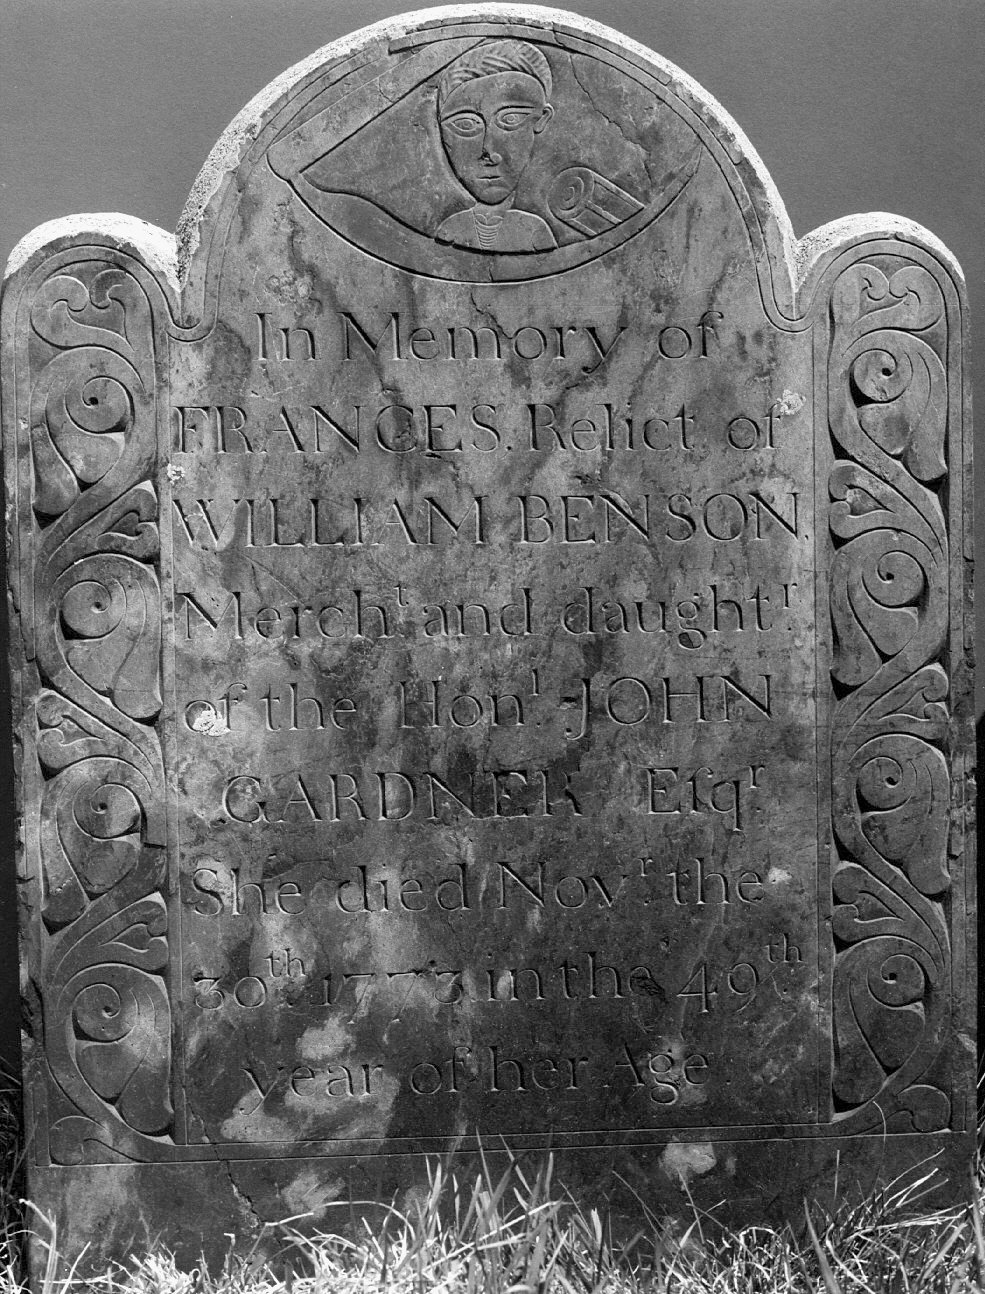 In Memory of
FRANCES. Relict of
WILLIAM BENSON.
Merchᵗ. and daughtʳ.
of the Honˡ. JOHN
GARDNER Eſqʳ.
She died Novʳ. the
30ᵗʰ. 1773. in the 49ᵗʰ.
year of her Age.